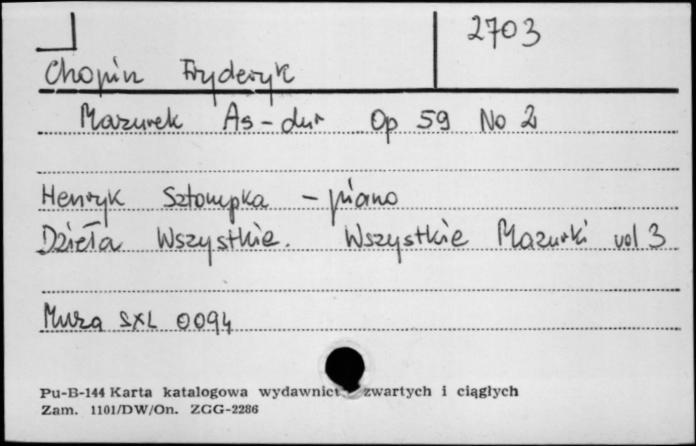 2703
Chopin Fryderyk
Mazurek As-dur Op 59 No 2
Henryk Sztompka - piano
Dzieła Wszystkie. Wszystkie Mazurki vol 3
Muza SXL 0094
Pu-B-144 Karta katalogowa wydawnict zwartych i ciągłych
Zam. 1101/DW/On. ZGG-2286